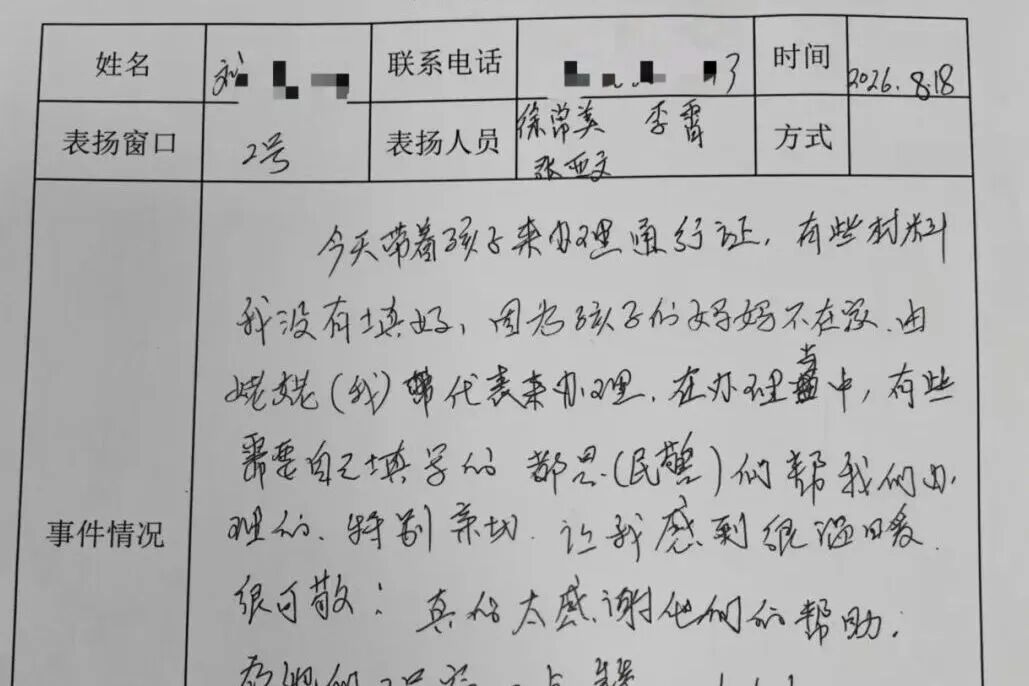 姓名 刘 联系电话 3 时间 2026.8.18
表扬窗口 2号 表扬人员 徐常美 李霄 张亚文 方式
事件情况
今天带着孩子来办理通行证,有些材料
我没有填好,因为孩子的妈妈不在家.由
姥姥(我)代表来办理.在办理当中,有些
需要自己填写的 都是(民警)们帮我们办
理的、特别亲切.让我感到很温暖.
很可敬:真的太感谢他们的帮助.